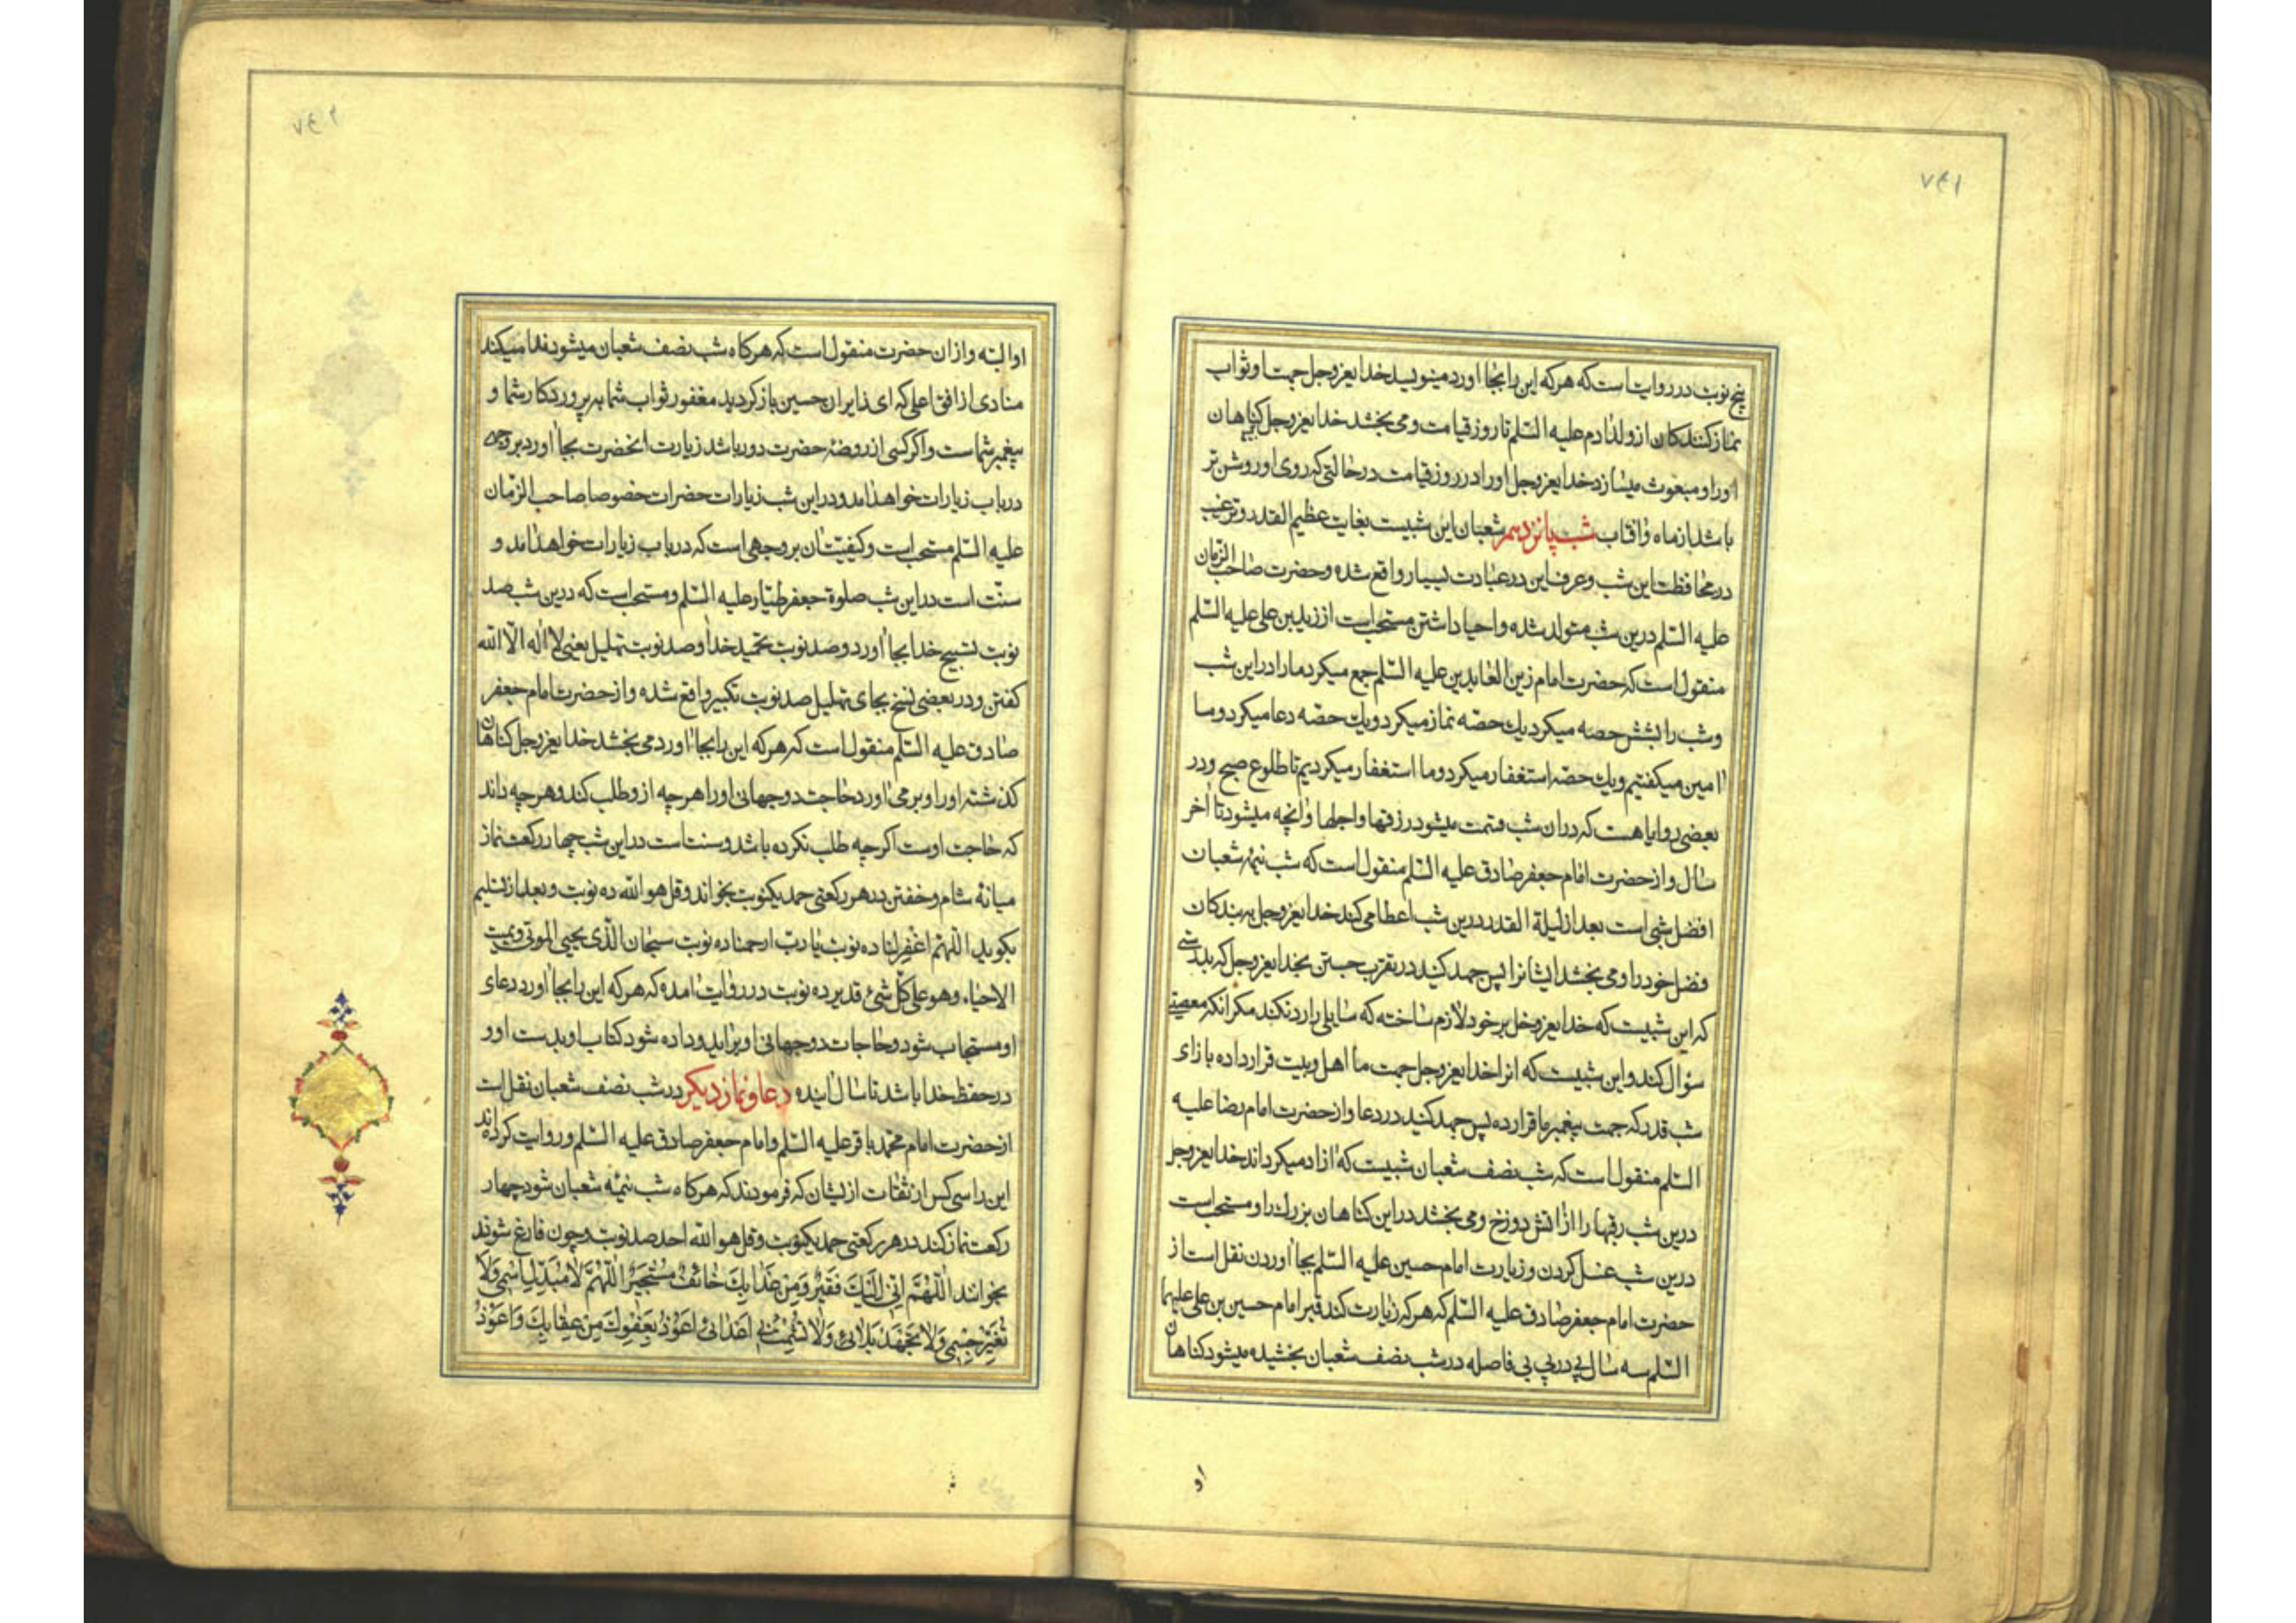 ۷۴۱
پنج نوبت در روایت است که هر که این را بجا اورد مینویسد خدایعزوجل جهت او ثواب
نماز کنندکان از ولد ادم علیه السّلم تا روز قیامت و می بخشد خدایعزوجل کناهان
او را و مبعوث میسازد خدایعزوجل او را در روز قیامت در حالتی که روی او روشن تر
باشد از ماه و افتاب شب پانزدهم شعبان این شبیست بغایت عظیم القدر و ترغیب
در محافظت این شب و عرف این در عبادت بسیار واقع شده و حضرت صاحب الزمان
علیه السّلم درین شب متولد شده و احیا داشتن مستحب است از زید بن علی علیه السّلم
منقول است که حضرت امام زین العابدین علیه السّلم جمع میکرد ما را در این شب
و شب را بشش حصه میکرد یك حصّه نماز میکرد و یك حصّه دعا میکرد و ما
امین میکفتیم و یك حصّه استغفار میکرد و ما استغفار میکردیم تا طلوع صبح و در
بعضی روایا هست که در ان شب قسمت میشود رزقها و اجلها و انچه میشود تا اخر
سال و از حضرت امام جعفر صادق علیه السّلم منقول است که شب نیمهٔ شعبان
افضل شبی است بعد از لیلة القدر درین شب اعطا می کند خدایعزوجل به بندکان
فضل خود را و می بخشد ایشانرا پس جهد کنید در تقرب جستن بخدایعزوجل که بدرستی
که این شبیست که خدایعزوجل بر خود لازم ساخته که سایلی را رد نکند مکر انکه معصیتی
سؤال کند و این شبیست که انرا خدایعزوجل جهت ما اهل و بیت قرار داده بازای
شب قدر که جهت پیغمبر ما قرار ده پس جهد کنید در دعا و از حضرت امام رضا علیه
السّلم منقول است که شب نصف شعبان شبیست که ازاد میکرداند خدایعزوجل
درین شب رقبها را از اتش دوزخ و می بخشد در این کناهان بزرك را و مستحب است
درین شب غسل کردن و زیارت امام حسین علیه السّلم بجا اوردن نقل است از
حضرت امام جعفر صادق علیه السّلم که هر که زیارت کند قبر امام حسین بن علی علیهما
السّلم سه سال پی در پی بی فاصله در شب نصف شعبان بخشیده میشود کناهان
او
۷۴۲
او البته و از ان حضرت منقول است که هر کاه شب نصف شعبان میشود ندا میکند
منادی از افق اعلی که ای زایران حسین باز کردید مغفور ثواب شما به پروردکار شما و
پیغمبر شماست و اکر کسی از روضهٔ حضرت دور باشد زیارت انحضرت بجا اورد بروجهی
در باب زیارات خواهد امد و در این شب زیارات حضرات خصوصا صاحب الزمان
علیه السّلم مستحب است و کیفیتشان بروجهی است که در باب زیارات خواهد امد و
سنّت است در این شب صلوة جعفر طیّار علیه السّلم و مستحب است که درین شب صد
نوبت تسبیح خدا بجا اورد و صد نوبت تحمید خدا و صد نوبت تهلیل یعنی لا اله الّا الله
کفتن و در بعضی نسخ بجای تهلیل صد نوبت تکبیر واقع شده و از حضرت امام جعفر
صادق علیه السّلم منقول است که هر که این را بجا اورد می بخشد خدایعزوجل کناهان
کذشته او را و بر می اورد حاجت دوجهانی او را هر چه از و طلب کند و هر چه داند
که حاجت اوست اکر چه طلب نکرده باشد و سنت است در این شب چهار رکعت نماز
میانهٔ شام و خفتن در هر رکعتی حمد یکنوبت بخواند و قل هو الله ده نوبت و بعد از تسلیم
بکوید اللّهّم اغفر لنا ده نوبت یا ربّ ارحمنا ده نوبت سبحان الّذی یحیی الموتی و یمیت
الاحیاء وهو علی کلّ شئ قدیر ده نوبت در روایت امده که هر که این را بجا اورد دعای
او مستجاب شود و حاجات دوجهانی او براید و داده شود کتاب او بدست او و
در حفظ خدا باشد تا سال اینده دعا و نماز دیکر در شب نصف شعبان نقل است
از حضرت امام محمّد باقر علیه السّلم و امام جعفر صادق علیه السّلم و روایت کرده اند
این را سی کس از ثقات از یشان که فرمودند که هر کاه شب نیمهٔ شعبان شود چهار
رکعت نماز کند در هر رکعتی حمد یکنوبت و قل هو الله احد صد نوبت و چون فارغ شوند
بخوانند اَللّهُمَّ اِنّی اِلَیْكَ فَقیٌر وَمِنْ عَذابِكَ خائِفٌ مُسْتَجیٌر اَللّهُمَّ لا تُبَدِّلْ اِسْمی وَلا
تُغَیِّرْ جِسْمی وَلا تَجْهَدْ بَلائی وَلا تُشْمِتْ بی اَعْدائی اَعُوذُ بِعَفْوِكَ مِنْ عِقابِكَ وَاَعُوذُ